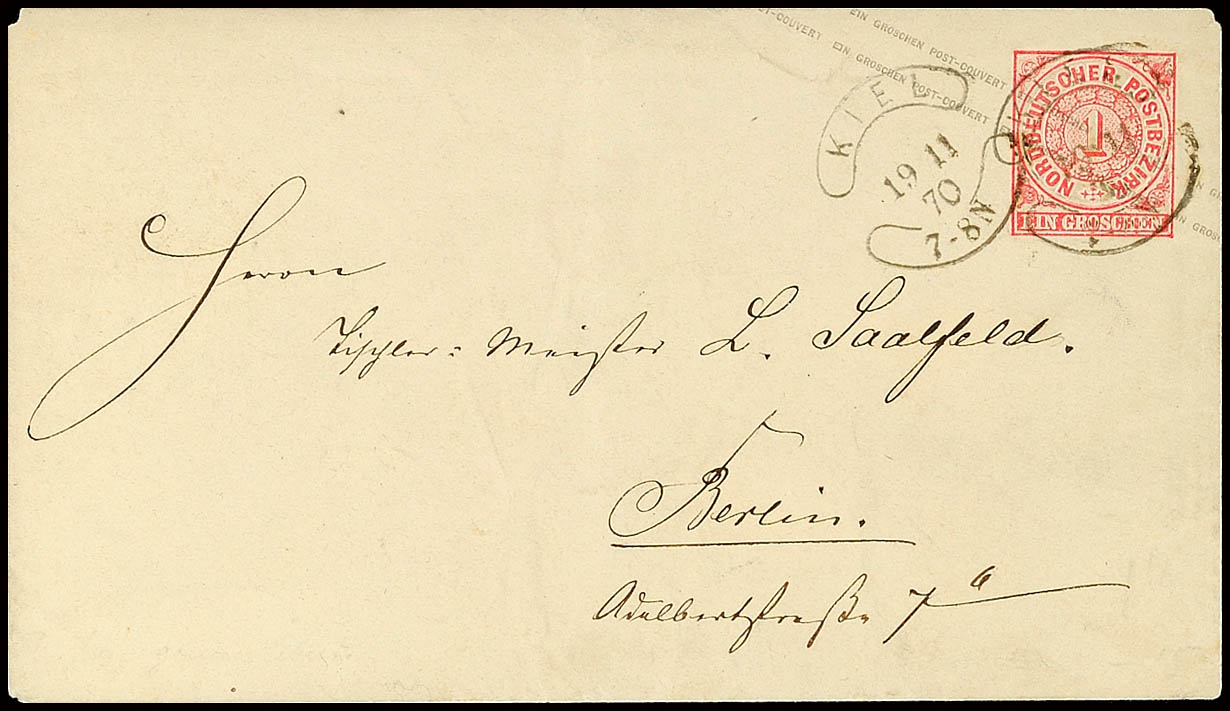 POST-COUVERT EIN GROSCHEN POST-COUVERT
EIN GROSCHEN POST-COUVERT
NORDDEUTSCHER POSTBEZIRK
1
EIN GROSCHEN
KIEL
19 11
70
7-8N
EIN GROSCHEN
Herrn
Tischler-Meister L. Saalfeld.
Berlin.
Adalbertstraße 7